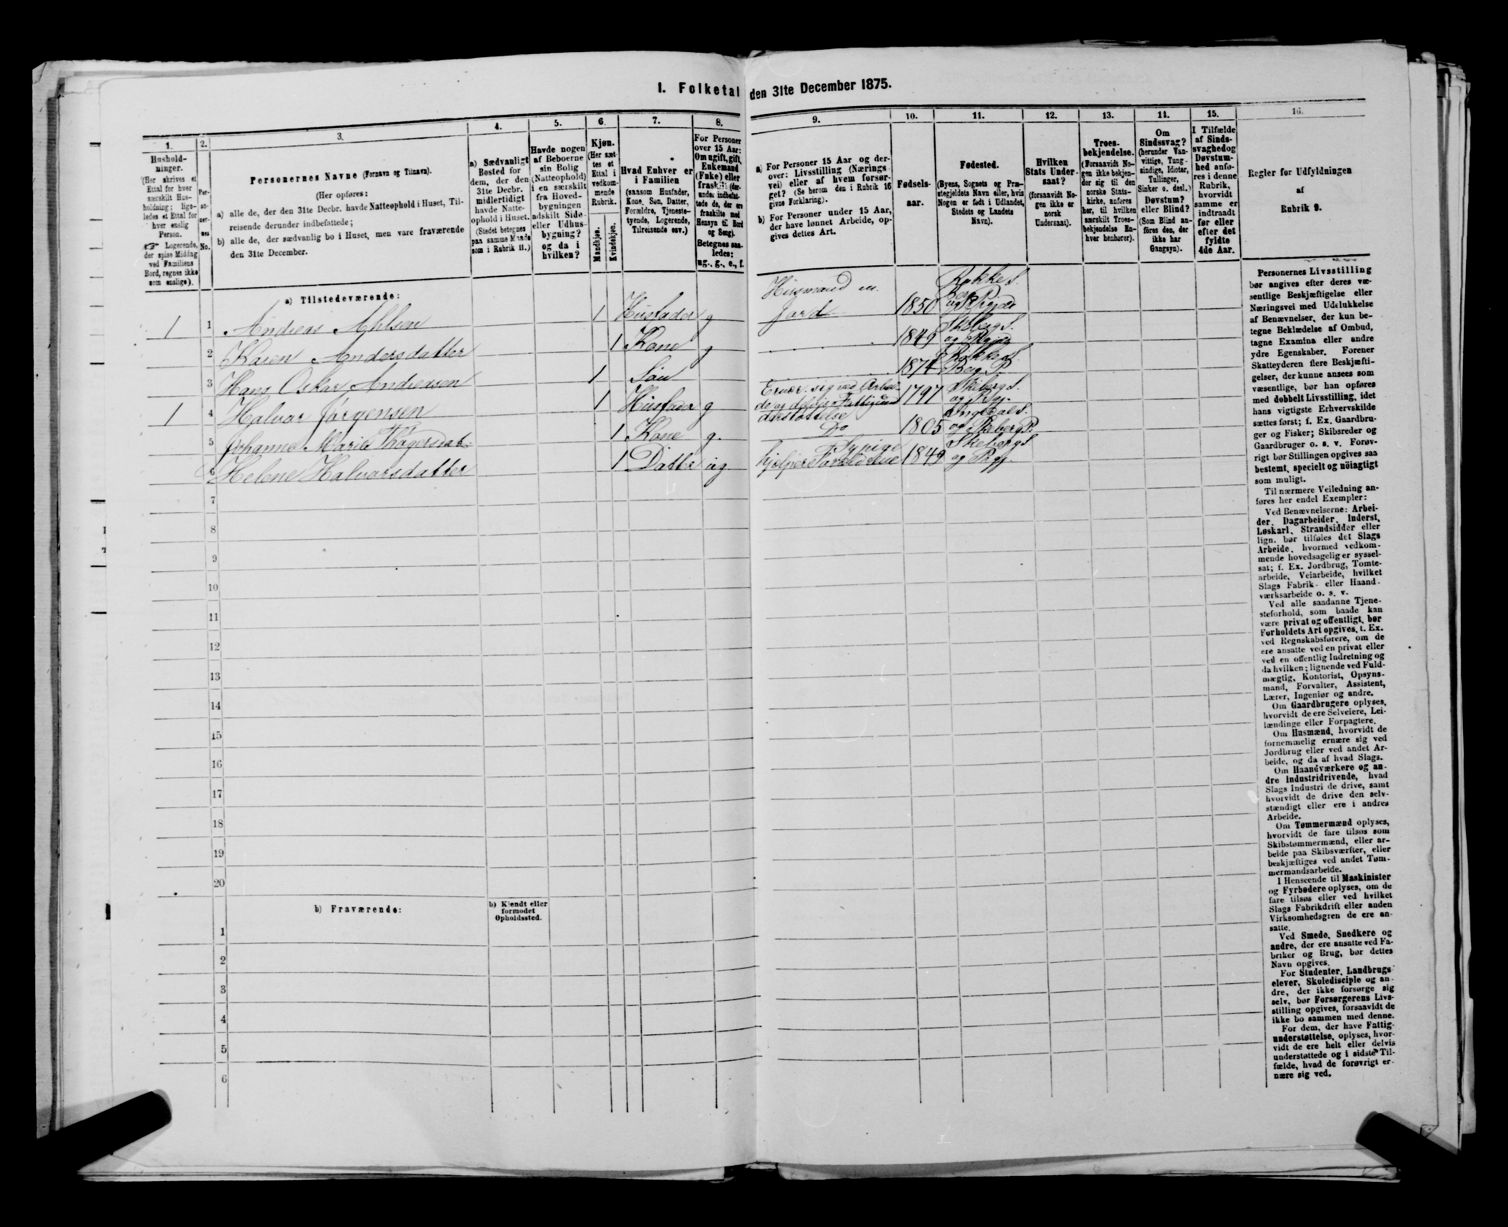 I. Folketal den 31te December 1875.
1.
2.
3.
4.
5.
6.
7.
8.
9.
10.
11.
12.
13.
14.
15.
16.
Hushold-
ninger.
(Her skrives et
Ettal for hver
særskilt Hus-
holdning; lige-
ledes et Ettal for
hver enslig
Person.
☞ Logerende,
der spise Middag
ved Familiens
Bord, regnes ikke
som enslige).
Per-
so-
ner-
nes
No.
Personernes Navne (Fornavn og Tilnavn).
(Her opføres:
a) alle de, der den 31te Decbr. havde Natteophold i Huset, Til-
reisende derunder indbefattede;
b) alle de, der sædvanlig bo i Huset, men vare fraværende
den 31te December.
a) Sædvanligt
Bosted for
dem, der den
31te Decbr.
midlertidigt
havde Natte-
ophold i Huset.
(Stedet betegnes
paa samme Maade
som i Rubrik 11.)
Havde nogen
af Beboerne
sin Bolig
(Natteophold)
i en særskilt
fra Hoved-
bygningen
adskilt Side-
eller Udhus-
bygning?
og da i
hvilken?
Kjøn.
(Her sæt-
tes et
Ettal i
vedkom-
mende
Rubrik.
Mandkjøn.
Kvindekjøn.
Hvad Enhver er
i Familien
(saasom Husfader,
Kone, Søn, Datter,
Forældre, Tjeneste-
tyende, Logerende,
Tilreisende osv.)
For Personer
over 15 Aar:
Om ugift, gift,
Enkemand
(Enke) eller
fraskilt (der-
under indbefat-
tede de, der ere
fraskilte med
Hensyn til Bord
og Seng).
Betegnes saa-
ledes:
ug., g., e., f.
a) For Personer 15 Aar og der-
over: Livsstilling (Nærings-
vei) eller af hvem forsør-
get? (Se herom den i Rubrik 16
givne Forklaring).
b) For Personer under 15 Aar,
der have lønnet Arbeide, op-
gives dettes Art.
Fødsels-
aar.
Fødested.
(Byens, Sognets og Præ-
stegjeldets Navn eller, hvis
Nogen er født i Udlandet,
Stedets og Landets
Navn).
Hvilken
Stats Under-
saat?
(forsaavidt No-
gen ikke er
norsk
Undersaat).
Troes-
bekjendelse.
(Forsaavidt No-
gen ikke bekjen-
der sig til den
norske Stats-
kirke, anføres
her, til hvilken
særskilt Troes-
bekjendelse En-
hver henhører).
Om
Sindssvag?
(herunder Van-
vittige, Tung-
sindige, Idioter,
Tullinger,
Sinker o. desl.)
Døvstum?
eller Blind?
(Som Blind an-
føres den, der
ikke har
Gangsyn).
I Tilfælde
af Sinds-
svaghed og
Døvstum-
hed anfø-
res i denne
Rubrik,
hvorvidt
samme er
indtraadt
før eller
efter det
fyldte
4de Aar.
Regler for Udfyldningen
af
Rubrik 9.
a) Tilstedeværende:
Husmand m.
Rokke S.
1 1 Andreas Ahlsen 1 Husfader g jord 1850
2 Karen Andersdatter 1 Kone g 1849 Skeberg S.
3 Hans Oskar Andreasen 1 Søn 1874 Rokke S. Berg P.
1 4 Halvor Jørgensen 1 Husfader g 1797 Skeberg S.
5 Johanne Marie 1 Kone g. Do 1805 og Skeberg P.
6 Helene Halvorsdatter 1 Datter ug hjælper Forældrene 1849 Skeberg S. og Pgj.
7
8
9
10
11
12
13
14
15
16
17
18
19
20
b) Fraværende:
b) Kjendt eller
formodet
Opholdssted.
1
2
3
4
5
6
Personernes Livsstilling
bør angives efter deres væ-
sentlige Beskjæftigelse eller
Næringsvei med Udelukkelse
af Benævnelser, der kun be-
tegne Beklædelse af Ombud,
tagne Examina eller andre
ydre Egenskaber. Forener
Skatteyderen flere Beskjæfti-
gelser, der kunne ansees som
væsentlige, bør han opføres
med dobbelt Livsstilling, idet
hans vigtigste Erhvervskilde
sættes først; f. Ex. Gaardbru-
ger og Fisker; Skibsreder og
Gaardbruger o. s. v. Forøv-
rigt bør Stillingen opgives saa
bestemt, specielt og nøiagtigt
som muligt.
Til nærmere Veiledning an-
føres her endel Exempler:
Ved Benævnelserne: Arbei-
der, Dagarbeider, Inderst,
Løskarl, Strandsidder eller
lign. bør tilføies det Slags
Arbeide, hvormed vedkom-
mende hovedsagelig er syssel-
sat; f. Ex. Jordbrug, Tomte-
arbeide, Veiarbeide, hvilket
Slags Fabrik- eller Haand-
værksarbeide o. s. v.
Ved alle saadanne Tjene-
steforhold, som baade kan
være privat og offentligt, bør
Forholdets Art opgives, t. Ex.
ved Regnskabsførere, om de
ere ansatte ved en privat eller
ved en offentlig Indretning og
da hvilken; lignende ved Fuld-
mægtig, Kontorist, Opsyns-
mand, Forvalter, Assistent,
Lærer, Ingeniør og andre.
Om Gaardbrugere oplyses,
hvorvidt de ere Selveiere, Lei-
lændinge eller Forpagtere.
Om Husmænd, hvorvidt de
fornemmelig ernære sig ved
Jordbrug eller ved andet Ar-
beide, og da af hvad Slags.
Om Haandværkere og an-
dre Industridrivende, hvad
Slags Industri de drive, samt
hvorvidt de drive den selv-
stændigt eller ere i andres
Arbeide.
Om Tømmermænd oplyses,
hvorvidt de fare tilsøs som
Skibstømmermænd, eller ar-
beide paa Skibsværfter, eller
beskjæftiges ved andet Tøm-
mermandsarbeide.
I Henseende til Maskinister
og Fyrbødere oplyses, om de
fare tilsøs eller ved hvilket
Slags Fabrikdrift eller anden
Virksomhedsgren de ere an-
satte.
Ved Smede, Snedkere og
andre, der ere ansatte ved Fa-
briker og Brug, bør dettes
Navn opgives.
For Studenter, Landbrugs-
elever, Skoledisciple og an-
dre, der ikke forsørge sig
selv, bør Forsørgerens Livs-
stilling opgives, forsaavidt de
ikke bo sammen med denne.
For dem, der have Fattig-
understøttelse, oplyses, hvor-
vidt de ere helt eller delvis
understøttede og i sidste Til-
fælde, hvad de forøvrigt er-
nære sig ved.